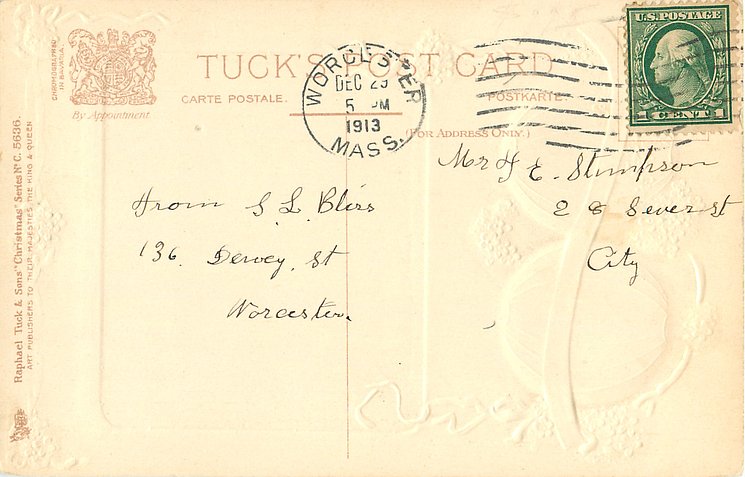 CHROMOGRAPHED
IN BAVARIA.
By Appointment
TUCK'S POST CARD
CARTE POSTALE.
POSTKARTE.
(FOR ADDRESS ONLY.)
WORCESTER
DEC 29
5 PM
1913
MASS.
U.S. POSTAGE
1 CENT 1
Raphael Tuck & Sons' "Christmas" Series No C. 5636.
ART PUBLISHERS TO THEIR MAJESTIES THE KING & QUEEN
From S L Bliss
136. Dewey. St
Worcester.
Mr F E. Stimpson
28 Sever st
City